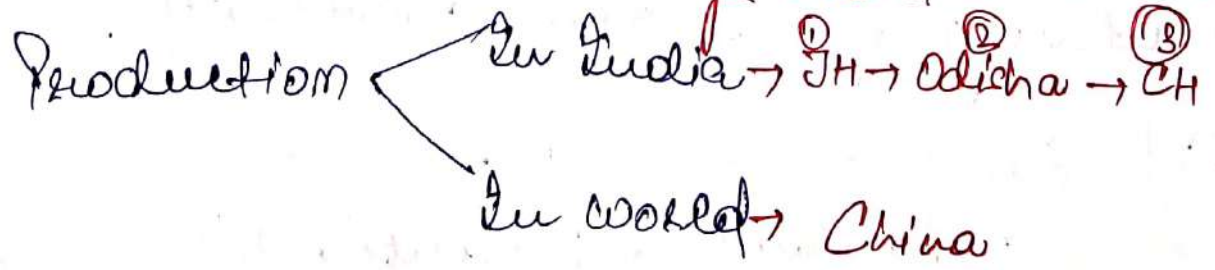 ① ② ③
Production In India → JH → Odisha → CH
In world → China